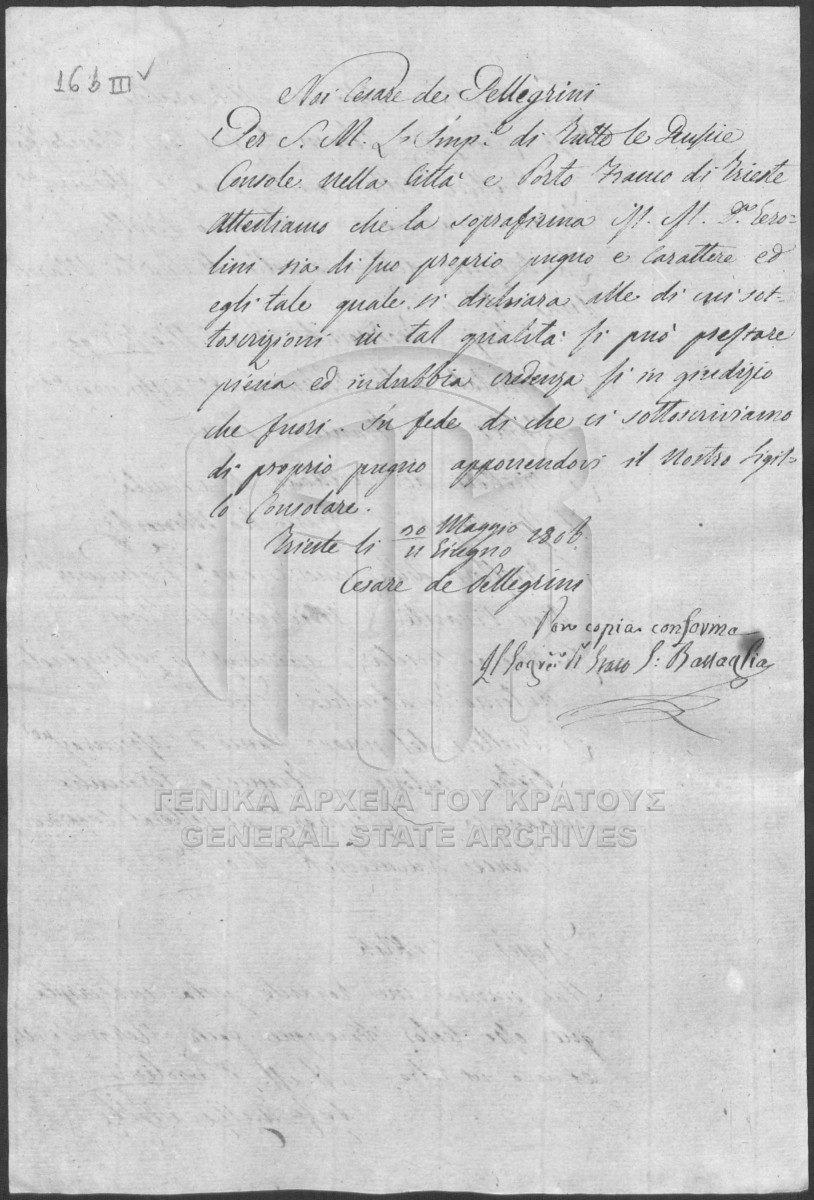 16 b III
Noi Cesare de Pellegrini
Per S. M. L' Imp.e di Tutte le Russie
Console nella Città e Porto Franco di Trieste
Attestiamo che la soprafirma M. M. D.r
lini sia di suo proprio pugno e Carattere ed
egli tale quale si dichiara alle di cui sot-
toscrizioni in tal qualità si può prestare
piena ed indubbia credenza sì in giudizio
che fuori. In fede di che ci sottoscriviamo
di proprio pugno apponendovi il Nostro Sigil-
lo Consolare.
Trieste li 30 Maggio / 11 Giugno 1806
Cesare de Pellegrini
Per copia conforme
Il Seg.rio S: Battaglia
ΓΕΝΙΚΑ ΑΡΧΕΙΑ ΤΟΥ ΚΡΑΤΟΥΣ
GENERAL STATE ARCHIVES